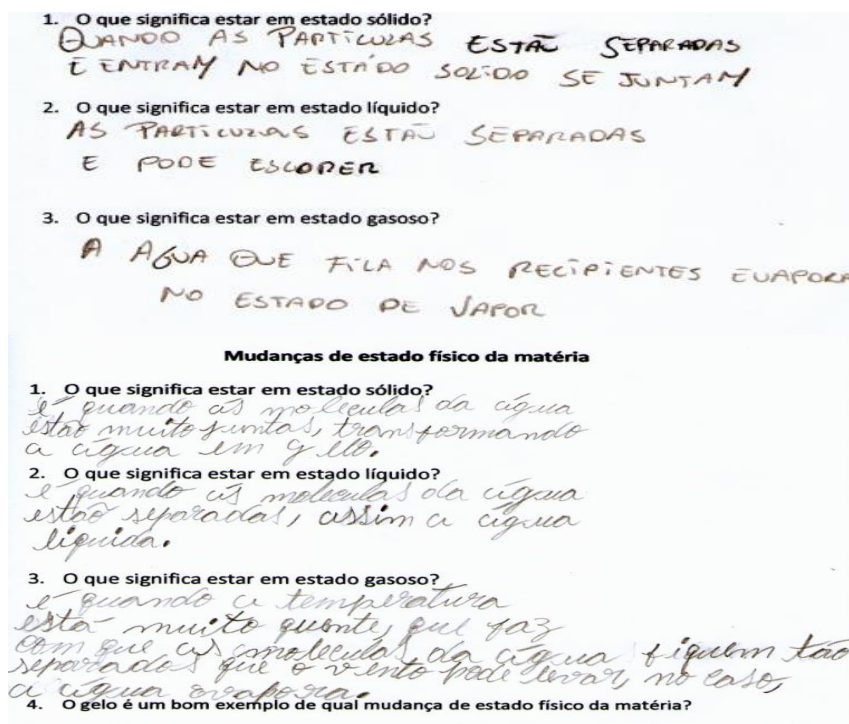 1. O que significa estar em estado sólido?
QUANDO AS PARTÍCULAS ESTÃO SEPARADAS
E ENTRAM NO ESTÁDO SOLIDO SE JUNTAM
2. O que significa estar em estado líquido?
AS PARTICULAS ESTÃO SEPARADAS
E PODE ESCORER
3. O que significa estar em estado gasoso?
A AGUA QUE FICA NOS RECIPIENTES EVAPORA
NO ESTADO DE VAPOR
Mudanças de estado físico da matéria
1. O que significa estar em estado sólido?
é quando as moleculas da água
estão muito juntas, transformando
a água em gelo.
2. O que significa estar em estado líquido?
é quando as moleculas da água
estão separadas, assim a água
liquida.
3. O que significa estar em estado gasoso?
é quando a temperatura
está muito quente, que faz
com que as moleculas da água fiquem tão
separadas que o vento pode levar, no caso,
a água evapora.
4. O gelo é um bom exemplo de qual mudança de estado físico da matéria?